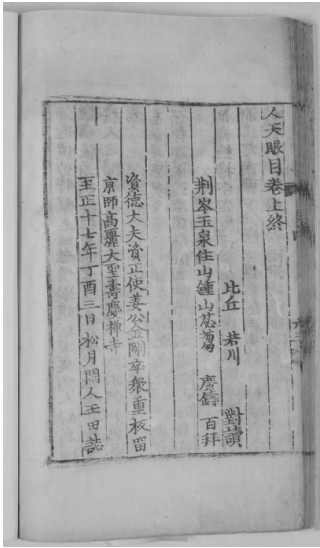 人天眼目卷上終
比丘 若川 對讀
荆 玉泉住山鍾山 百拜
資德大夫資正使姜公金剛卒衆重板留
京師高麗大聖壽慶禪寺
至正十七年丁酉三日 松月閒人玉田誌